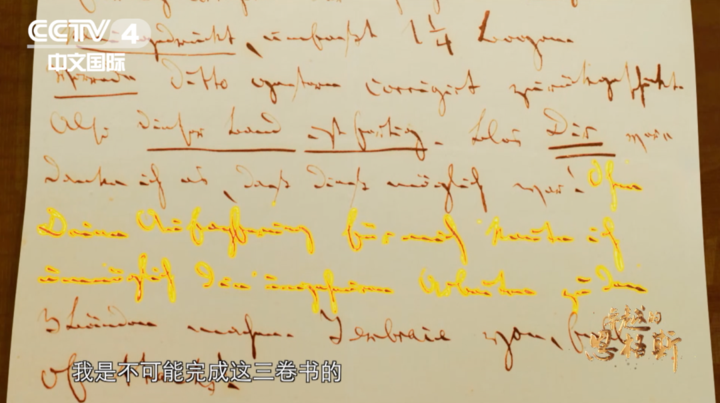 CCTV 4
中文国际
gedruckt, umfaßt 1 1/4 Bogen.
Vorrede ditto gestern corrigirt zurückgeschickt.
Also dieser Band ist fertig. Blos Dir ver
danke ich es, daß dieß möglich war! Ohne
Deine Aufopferung für mich konnte ich
unmöglich die ungeheuren Arbeiten zu den
3 Bänden machen. I embrace you, full
of thanks!
恩格斯
我是不可能完成这三卷书的